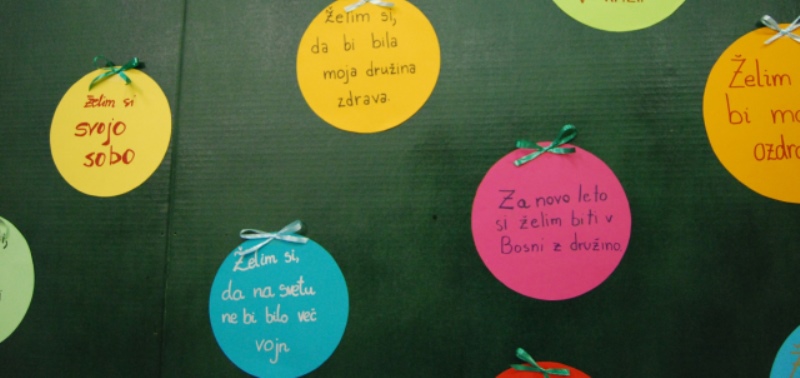 Želim si
svojo
sobo
Želim si,
da bi bila
moja družina
zdrava.
Želim si,
da na svetu
ne bi bilo več
vojn
Za novo leto
si želim biti v
Bosni z družino.
Želim
bi